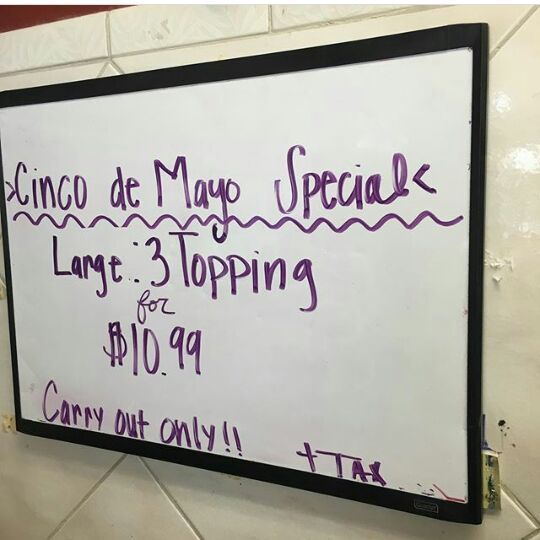 >Cinco de Mayo Special<
Large: 3 Topping
for
$10.99
Carry out only!!
+ TAX